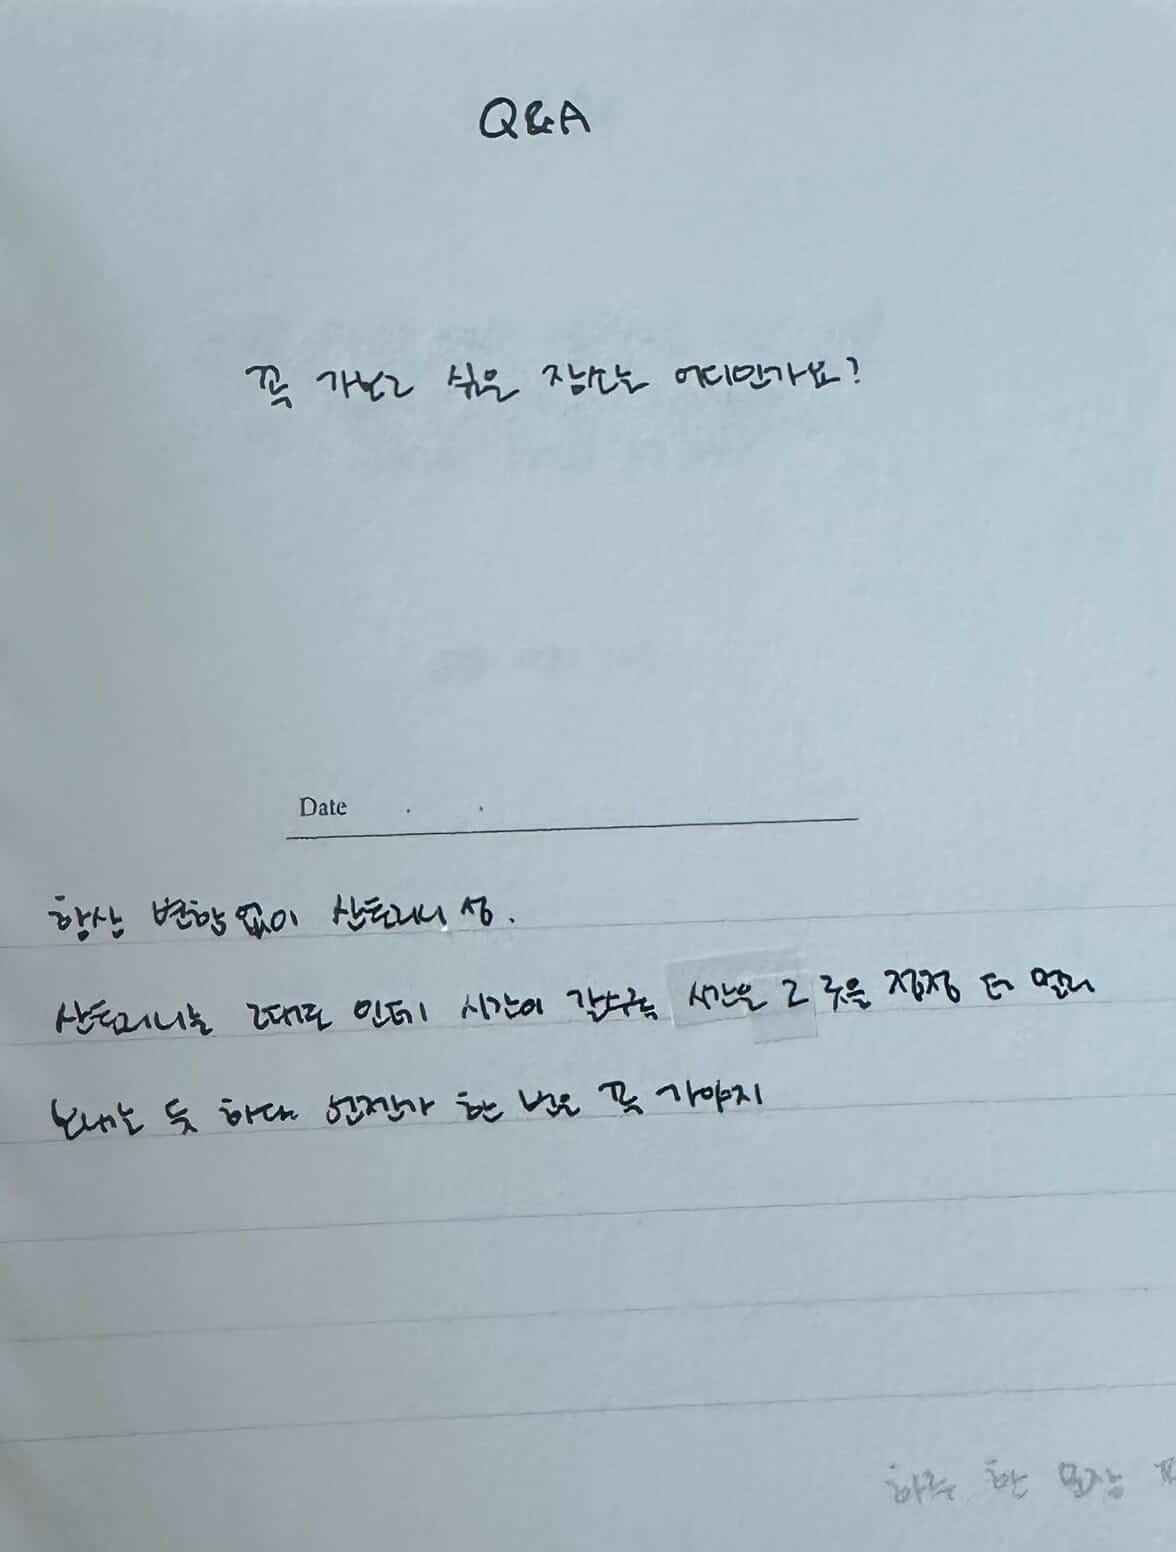 Q&A
꼭 가보고 싶은 장소는 어디인가요?
Date . .
항상 변함없이 산토리니 섬.
산토리니는 그대로 인데 시간이 갈수록 시간은 그 곳을 점점 더 멀리
보내는 듯 하다 언젠가 한 번은 꼭 가야지
하루 한 문장